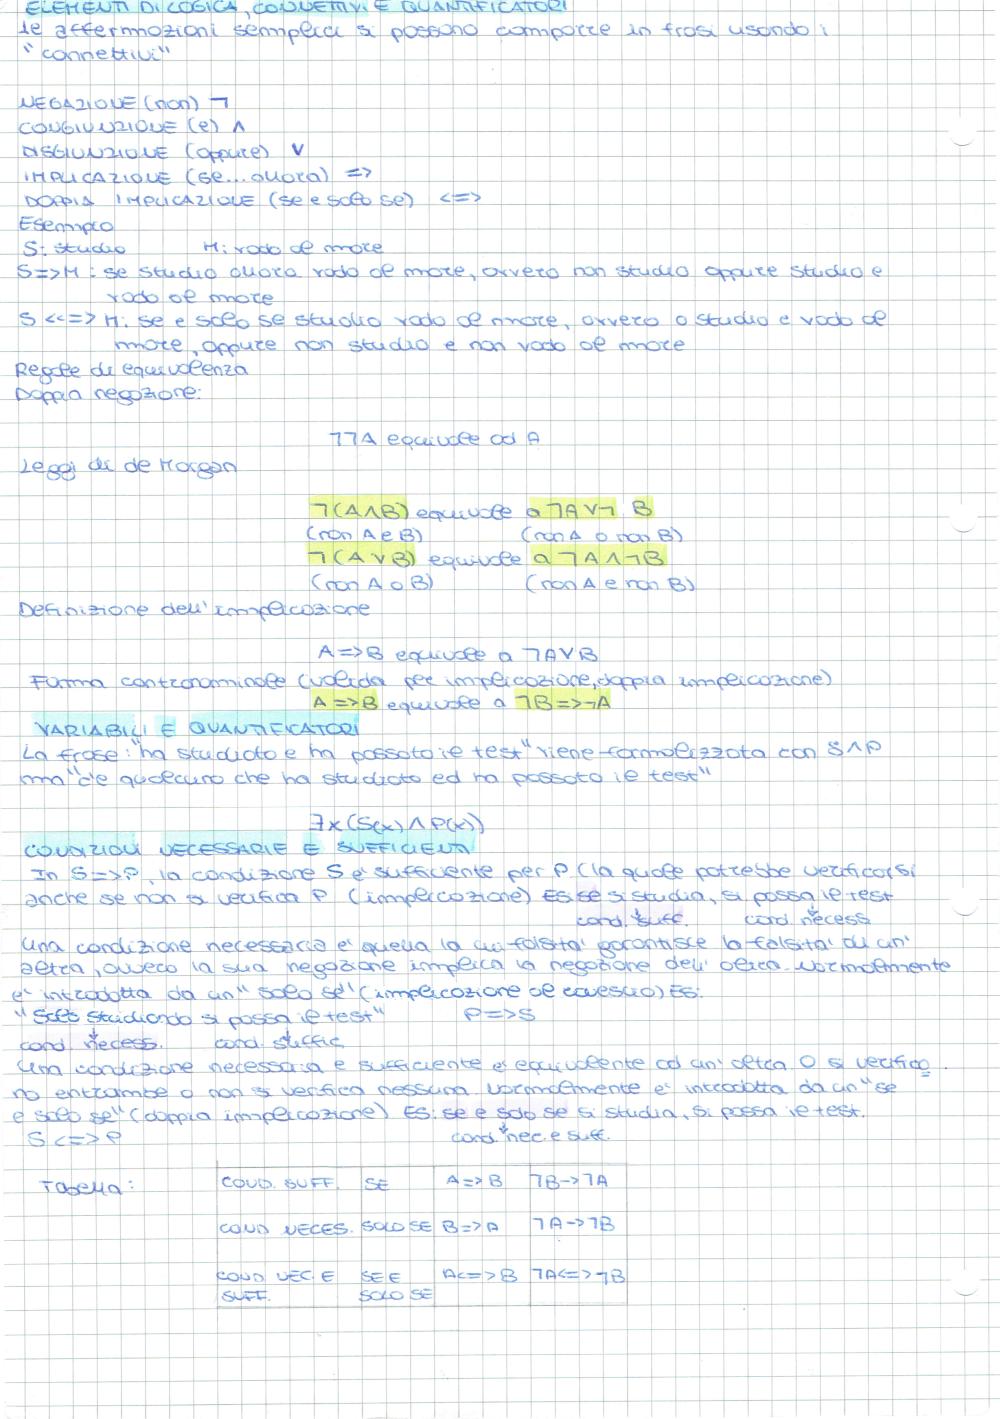 ELEMENTI DI LOGICA, CONNETTIVI E QUANTIFICATORI
le affermazioni semplici si possono comporre in frasi usando i
"connettivi"
NEGAZIONE (non) ¬
CONGIUNZIONE (e) ∧
DISGIUNZIONE (oppure) ∨
IMPLICAZIONE (se...allora) =>
DOPPIA IMPLICAZIONE (se e solo se) <=>
Esempio
S: studio M: vado al mare
S=>M : se studio allora vado al mare, ovvero non studio oppure studio e
vado al mare
S <<=> M: se e solo se studio vado al mare, ovvero o studio e vado al
mare, oppure non studio e non vado al mare
Regole di equivalenza
Doppia negazione:
¬¬A equivale ad A
Leggi di de Morgan
¬(A∧B) equivale a ¬A∨¬ B
(non A e B) (non A o non B)
¬(A∨B) equivale a ¬A∧¬B
(non A o B) (non A e non B)
Definizione dell'implicazione
A=>B equivale a ¬A∨B
Forma contronominale (valida per implicazione, doppia implicazione)
A=>B equivale a ¬B=>¬A
VARIABILI E QUANTIFICATORI
La frase: "ha studiato e ha passato il test" viene formalizzata con S∧P
ma "c'è qualcuno che ha studiato ed ha passato il test"
∃x(S(x)∧P(x))
CONDIZIONI NECESSARIE E SUFFICIENTI
In S=>P, la condizione S è sufficiente per P (la quale potrebbe verificarsi
anche se non si verifica P (implicazione) ES: se si studia, si passa il test
cond. suff. cond. necess
Una condizione necessaria e' quella la cui falsita' garantisce la falsita' di un'
altra, ovvero la sua negazione implica la negazione dell' altra. Normalmente
e' introdotta da un "solo se" (implicazione al rovescio) ES:
"Solo studiando si passa il test" P=>S
cond. necess. cond. suffic
Una condizione necessaria e sufficiente e' equivalente ad un' altra. O si verifica
no entrambe o non si verifica nessuna. Normalmente e' introdotta da un "se
e solo se" (doppia implicazione) ES: se e solo se si studia, si passa il test.
S <=> P cond. nec. e suff.
Tabella:
COND. SUFF. SE A=>B ¬B->¬A
COND NECES. SOLO SE B=>A ¬A->¬B
COND NEC. E SE E A<=>B ¬A<=>¬B
SUFF. SOLO SE